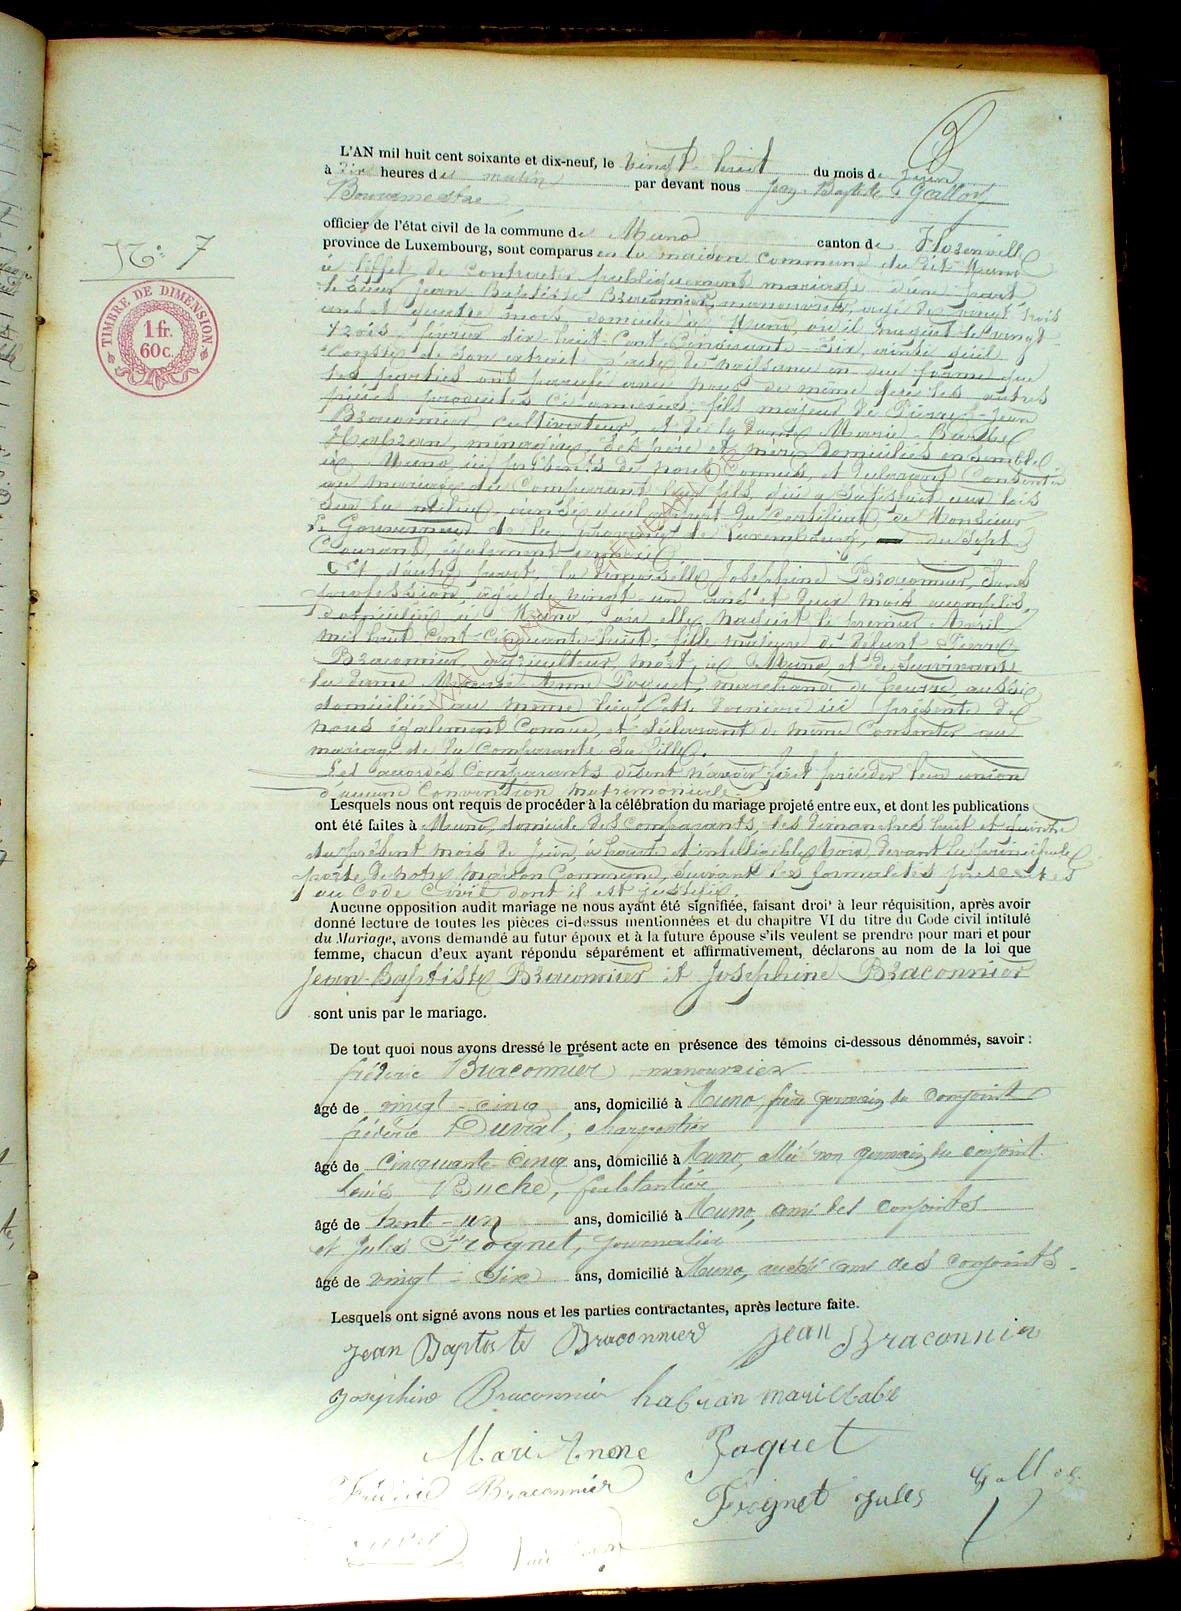 L'AN mil huit cent soixante et dix-neuf, le vingt-huit du mois de juin
à dix heures du matin par devant nous Jean-Baptiste Galloy
Bourgmestre
officier de l'état civil de la commune de Muno canton de Florenville
province de Luxembourg, sont comparus en la maison commune du dit Muno
à l'effet de contracter publiquement mariage d'une part
le sieur Jean-Baptiste Braconnier, manouvrier, âgé de vingt trois
ans et quatre mois domicilié à Muno, où il naquit le vingt
trois février dix-huit-cent-cinquante-six, ainsi qu'il
conste de son extrait d'acte de naissance en due forme que
les parties ont paraphé avec nous de même que les autres
pièces produites ci-annexées, fils majeur de Pierre-Jean
Braconnier, cultivateur, et de la dame Marie-Barbe
Habran, ménagère, ses père et mère domiciliés ensemble
à Muno, ici présents de nous connus, et déclarant consentir
au mariage du comparant leur fils, qui a satisfait aux lois
sur la milice, ainsi qu'il appert du certificat de Monsieur
le Gouverneur de la province de Luxembourg, du sept
courant, également annexé
Et d'autre part, la demoiselle Joséphine Braconnier, sans
profession, âgée de vingt-un ans et deux mois accomplis,
domiciliée à Muno où elle naquit le premier Avril
mil huit cent cinquante-huit, fille majeure de défunt Pierre
Braconnier, agriculteur, mort à Muno, et de survivante
la dame Marie Anne Paquet, marchande de beurre, aussi
domiciliée au même lieu cette dernière ici présente de
nous également connue, et déclarant de même consentir au
mariage de la comparante sa fille.
Les accordés comparants disent n'avoir fait précéder leur union
d'aucune convention matrimoniale.
Lesquels nous ont requis de procéder à la célébration du mariage projeté entre eux, et dont les publications
ont été faites à Muno, domicile des comparants, les dimanches huit et quinze
du présent mois de juin, à haute et intelligible voix, devant la principale
porte de notre maison commune, suivant les formalités prescrites
au Code Civil dont il est justifié.
Aucune opposition audit mariage ne nous ayant été signifiée, faisant droit à leur réquisition, après avoir
donné lecture de toutes les pièces ci-dessus mentionnées et du chapitre VI du titre du Code civil intitulé
du Mariage, avons demandé au futur époux et à la future épouse s'ils veulent se prendre pour mari et pour
femme, chacun d'eux ayant répondu séparément et affirmativement, déclarons au nom de la loi que
Jean-Baptiste Braconnier et Joséphine Braconnier
sont unis par le mariage.
De tout quoi nous avons dressé le présent acte en présence des témoins ci-dessous dénommés, savoir :
fréderic Braconnier, manouvrier
âgé de vingt-cinq ans, domicilié à Muno, frère germain du conjoint
fréderic Duvial, charpentier
âgé de cinquante-cinq ans, domicilié à Muno, allié non germain du conjoint
Louis Buche, ferblantier
âgé de trente-un ans, domicilié à Muno, ami des conjoints
et Jules Frognet, journalier
âgé de vingt-six ans, domicilié à Muno, aussi ami des conjoints.
Lesquels ont signé avons nous et les parties contractantes, après lecture faite.
Jean Baptiste Braconnier Jean Braconnier
Joséphine Braconnier habran mari babe
Mari Anne Paquet
Frédéric Braconnier
Frognet Jules Galloy
N°: 7
TIMBRE DE DIMENSION
1 fr.
60c.